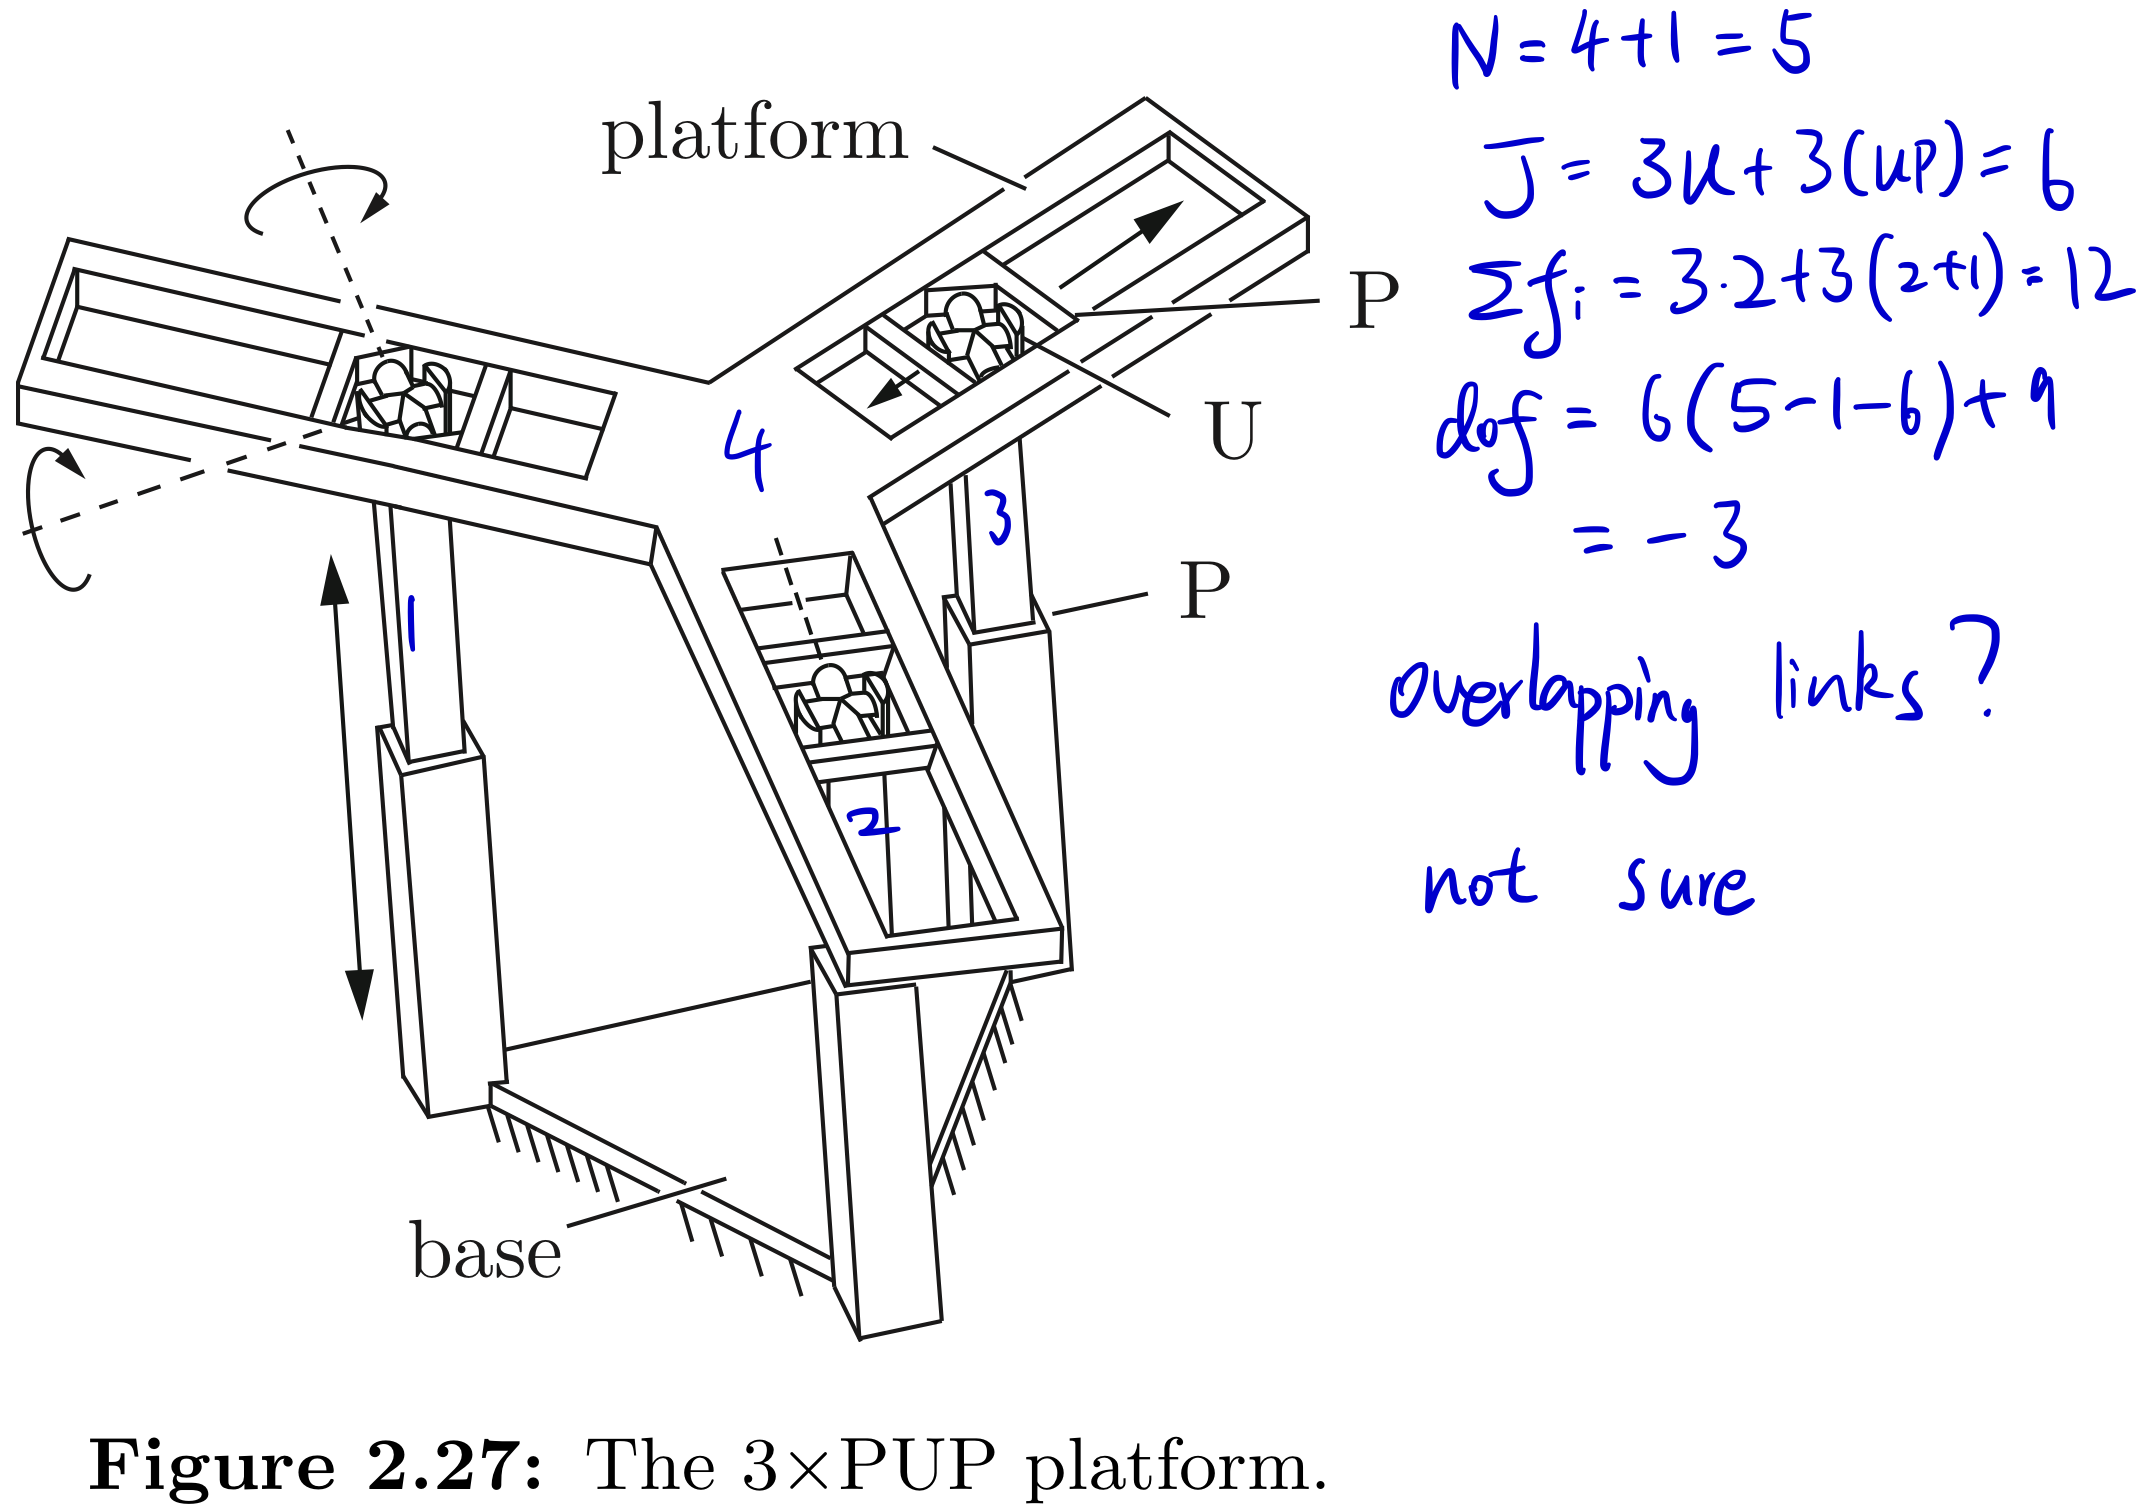 platform
P
U
P
base
4
3
1
2
N = 4+1 = 5
J = 3U+3(UP) = 6
Σfi = 3·2+3(2+1) = 12
dof = 6(5-1-6)+9
= -3
overlapping links?
not sure
Figure 2.27: The 3×PUP platform.